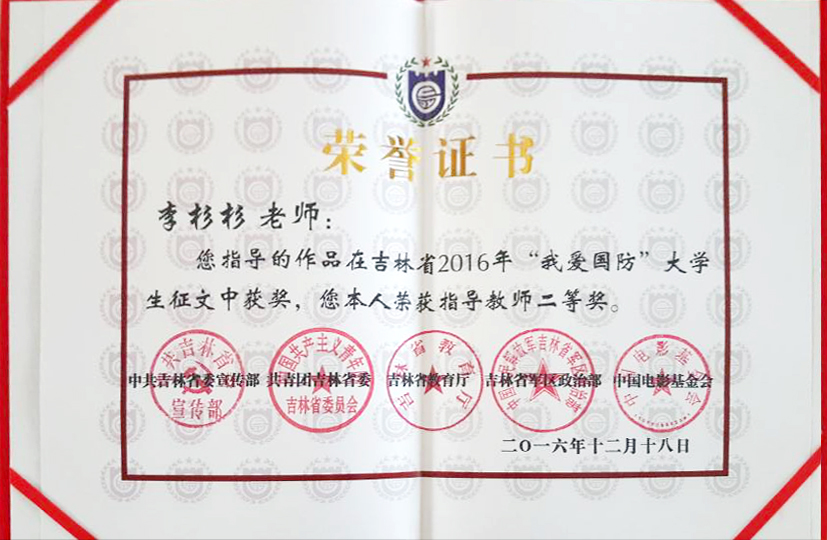 荣誉证书
李杉杉 老师：
您指导的作品在吉林省2016年“我爱国防”大学
生征文中获奖，您本人荣获指导教师二等奖。
中共吉林省委宣传部 共青团吉林省委 吉林省教育厅 吉林省军区政治部 中国电影基金会
宣传部
中国共产主义青年团
吉林省委员会
吉林省教育厅
中国人民解放军吉林省军区政治部
中国电影基金会
二〇一六年十二月十八日